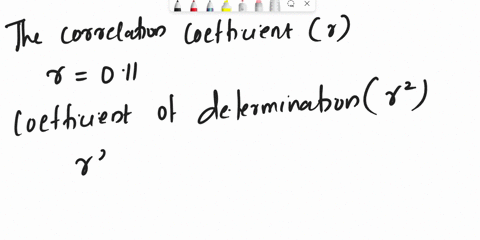 The correlation coefficient (r)
r = 0.11
coefficient of determination (r²)
r²